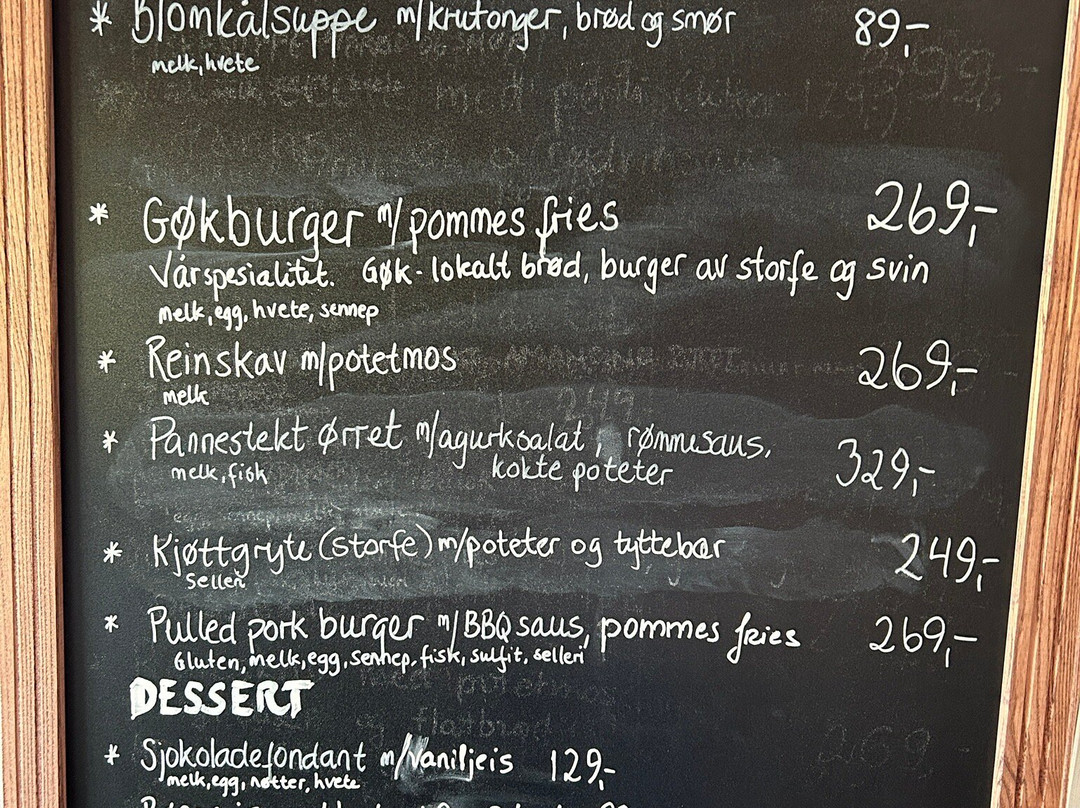 * Blomkålsuppe m/krutonger, brød og smør 89,-
melk, hvete
* Gøkburger m/pommes fries 269,-
Vår spesialitet. Gøk-lokalt brød, burger av storfe og svin
melk, egg, hvete, sennep
* Reinskav m/potetmos 269,-
melk
* Pannestekt ørret m/agurksalat, rømmesaus,
melk, fisk kokte poteter 329,-
* Kjøttgryte (storfe) m/poteter og tyttebær 249,-
Selleri
* Pulled pork burger m/BBQ saus, pommes fries 269,-
Gluten, melk, egg, sennep, fisk, sulfit, selleri
DESSERT
* Sjokoladefondant m/Vaniljeis 129,-
melk, egg, nøtter, hvete